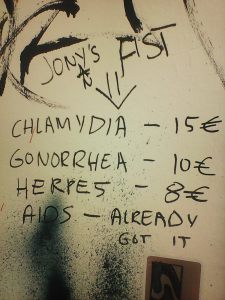 JONY'S FIST
CHLAMYDIA - 15€
GONORRHEA - 10€
HERPES - 8€
AIDS - ALREADY
GOT IT